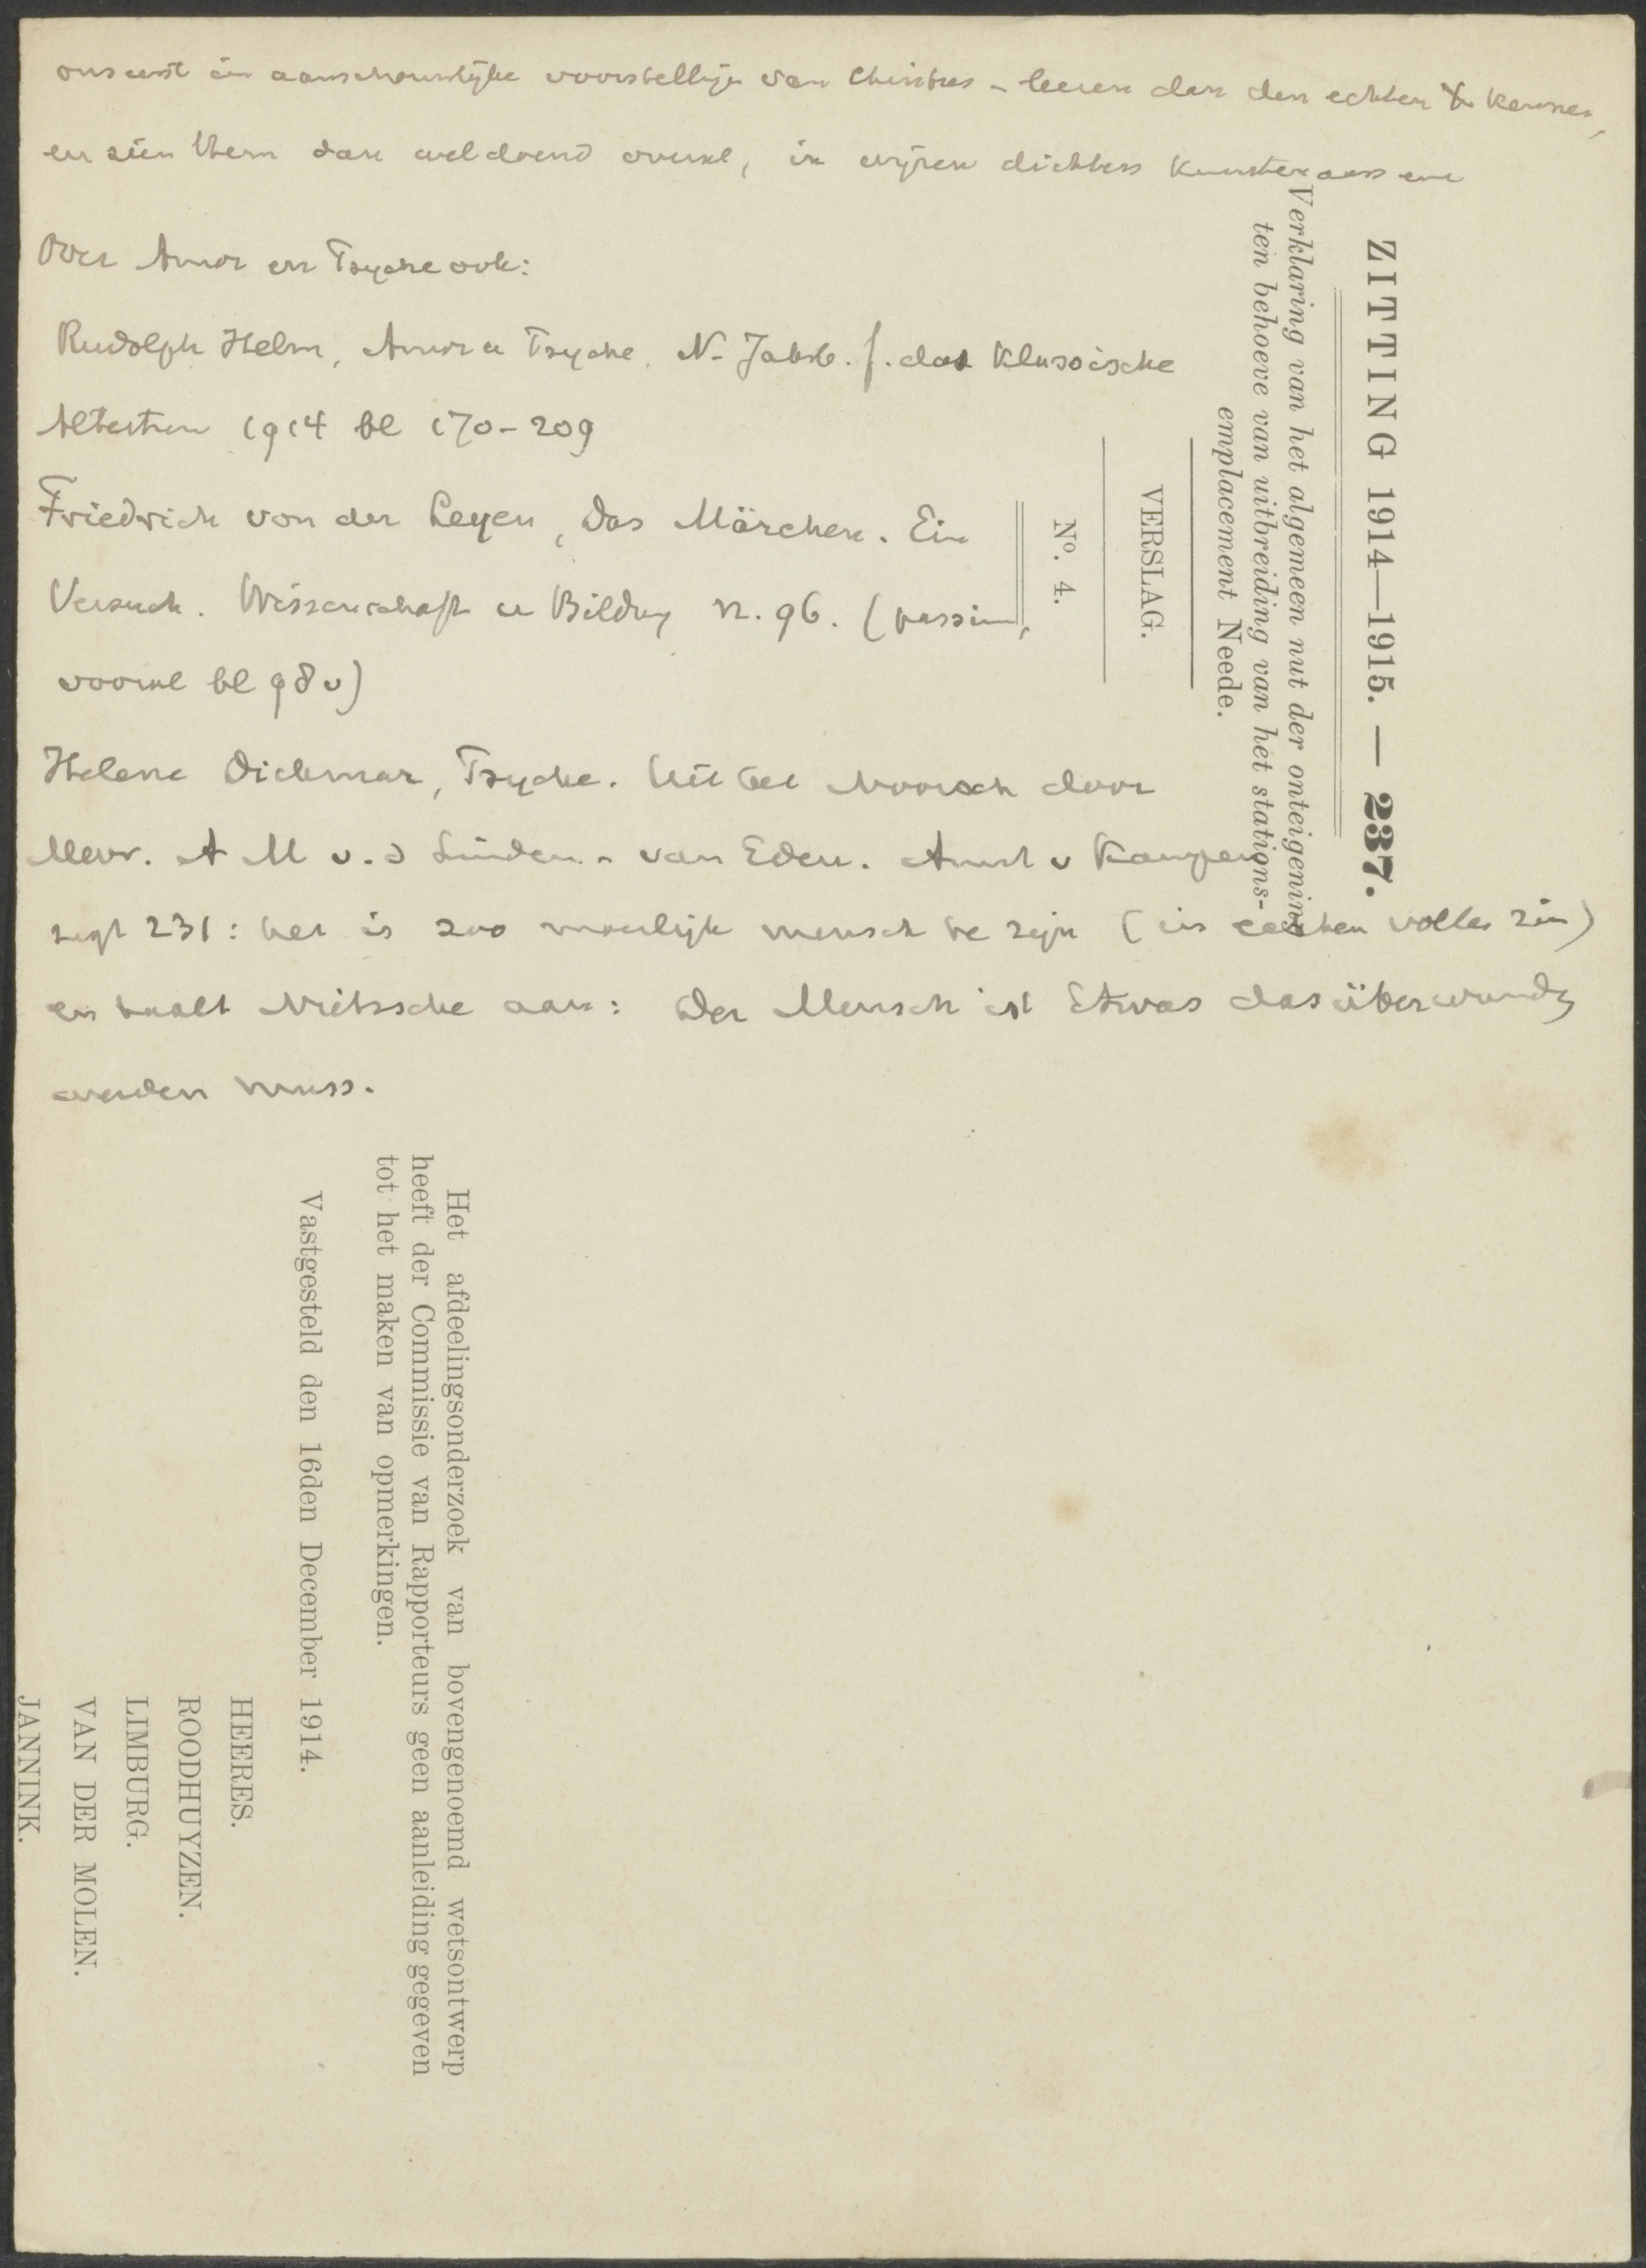 ons eerst in aanschouwelijke voorstellije van Christus - leeren dan den echten X kennen,
en zien Hem dan weldoend overal, in wijzen dichters kunstenaars enz
Over Amor en Psyche ook:
Rudolph Helm, Amor u Psyche. N. Jahrb. f. das klassische
Altertum 1914 bl 170-209
Friedrich von der Leyen, Das Märchen. Ein
Versuch. Wissenschaft u Bildung n. 96. (passim,
vooral bl 98 v)
Helene Dickmar, Psyche. Uit het Noorsch door
Mevr. A M v. d Linden - van Eden. Amst v Kampen
zegt 231: het is zoo moeilijk mensch te zijn (in echten vollen zin)
en haalt Nietzsche aan: Der Mensch ist Etwas das überwunden
werden muss.
ZITTING 1914—1915. — 237.
Verklaring van het algemeen nut der onteigening
ten behoeve van uitbreiding van het stations-
emplacement Neede.
VERSLAG.
No. 4.
Het afdeelingsonderzoek van bovengenoemd wetsontwerp
heeft der Commissie van Rapporteurs geen aanleiding gegeven
tot het maken van opmerkingen.
Vastgesteld den 16den December 1914.
HEERES.
ROODHUYZEN.
LIMBURG.
VAN DER MOLEN.
JANNINK.